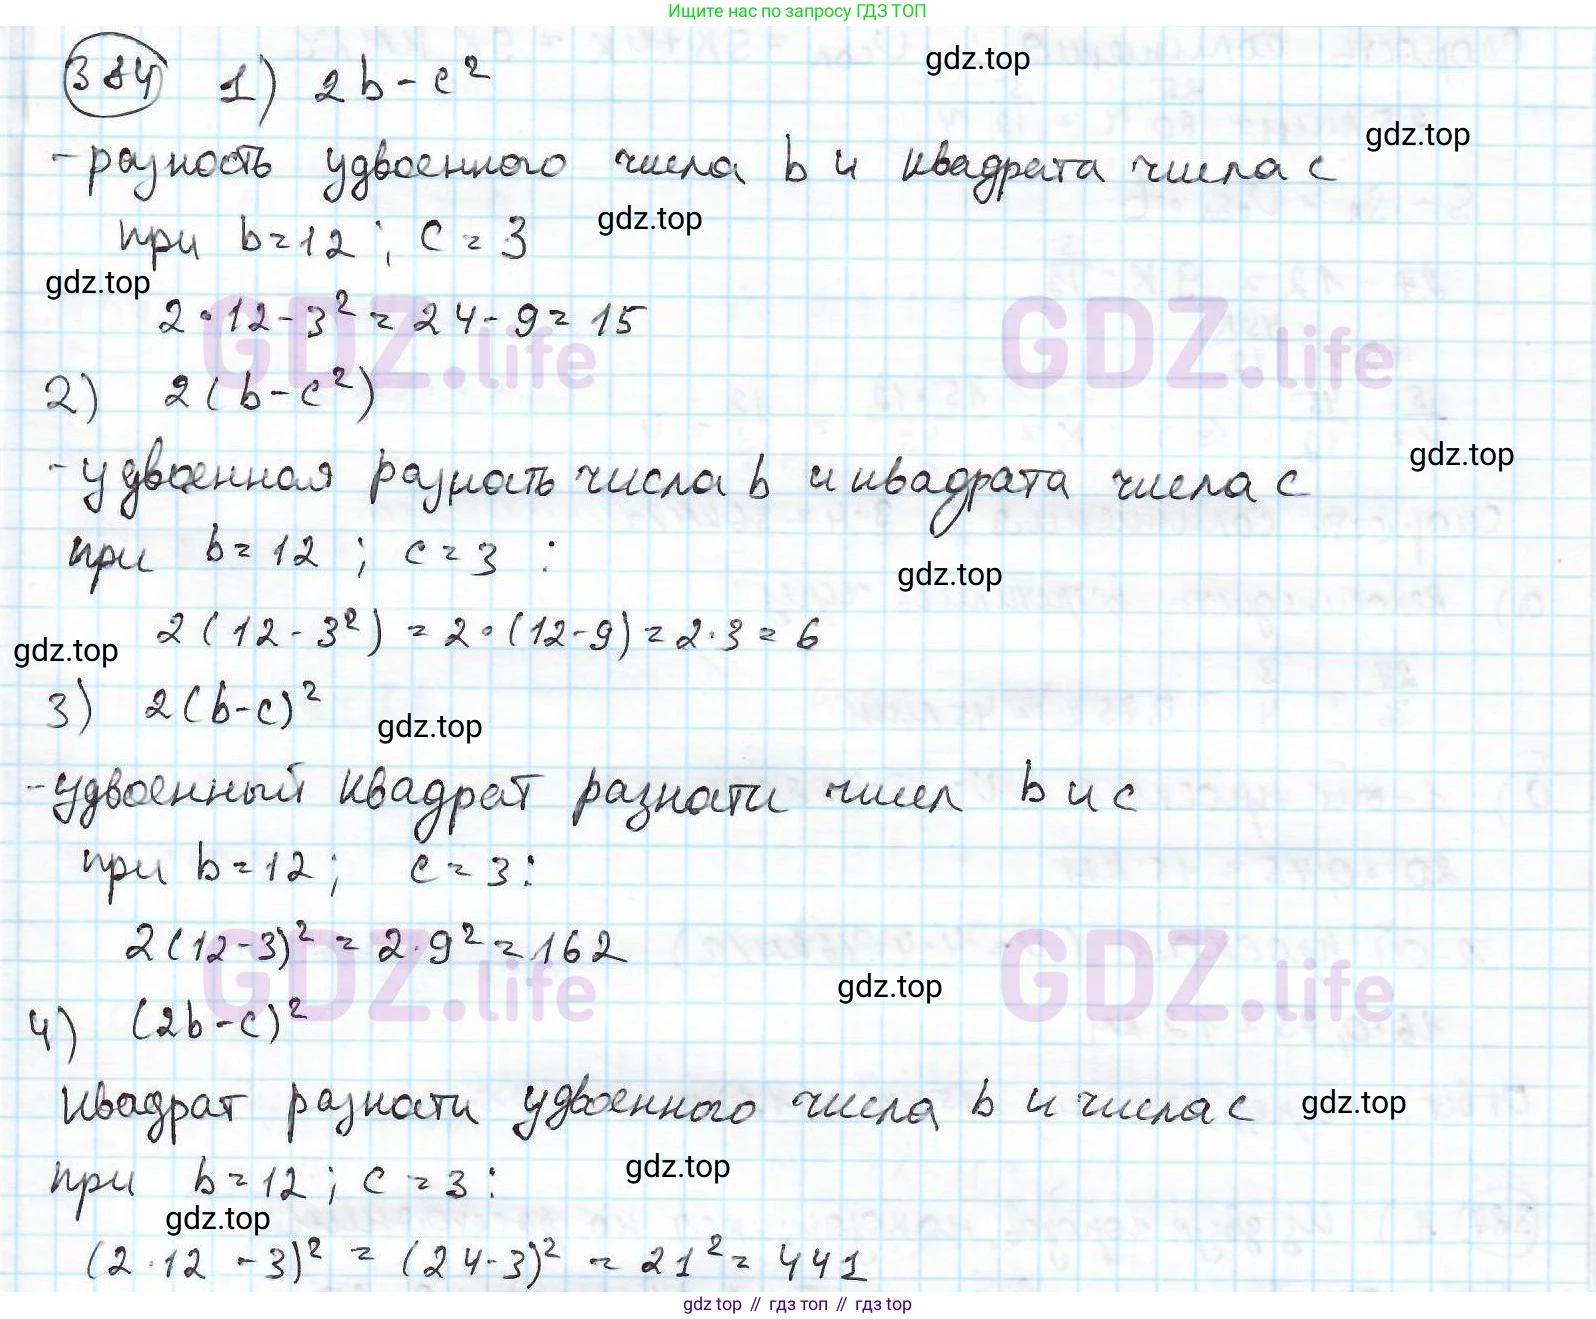 Ищите нас по запросу ГДЗ ТОП
384 1) 2b - c²
gdz.top
gdz.top
- разность удвоенного числа b и квадрата числа c
gdz.top
при b = 12 ; c = 3
gdz.top
2 · 12 - 3² = 24 - 9 = 15
GDZ.life GDZ.life
2) 2(b - c²)
gdz.top
- удвоенная разность числа b и квадрата числа c
при b = 12 ; c = 3 :
gdz.top
2(12 - 3²) = 2 · (12 - 9) = 2 · 3 = 6
gdz.top
3) 2(b - c)²
gdz.top
- удвоенный квадрат разности чисел b и c
при b = 12 ; c = 3 :
2(12 - 3)² = 2 · 9² = 162
GDZ.life GDZ.life
gdz.top
4) (2b - c)²
Квадрат разности удвоенного числа b и числа c
gdz.top
при b = 12 ; c = 3 :
gdz.top
gdz.top
(2 · 12 - 3)² = (24 - 3)² = 21² = 441
gdz.top // гдз топ // gdz.top